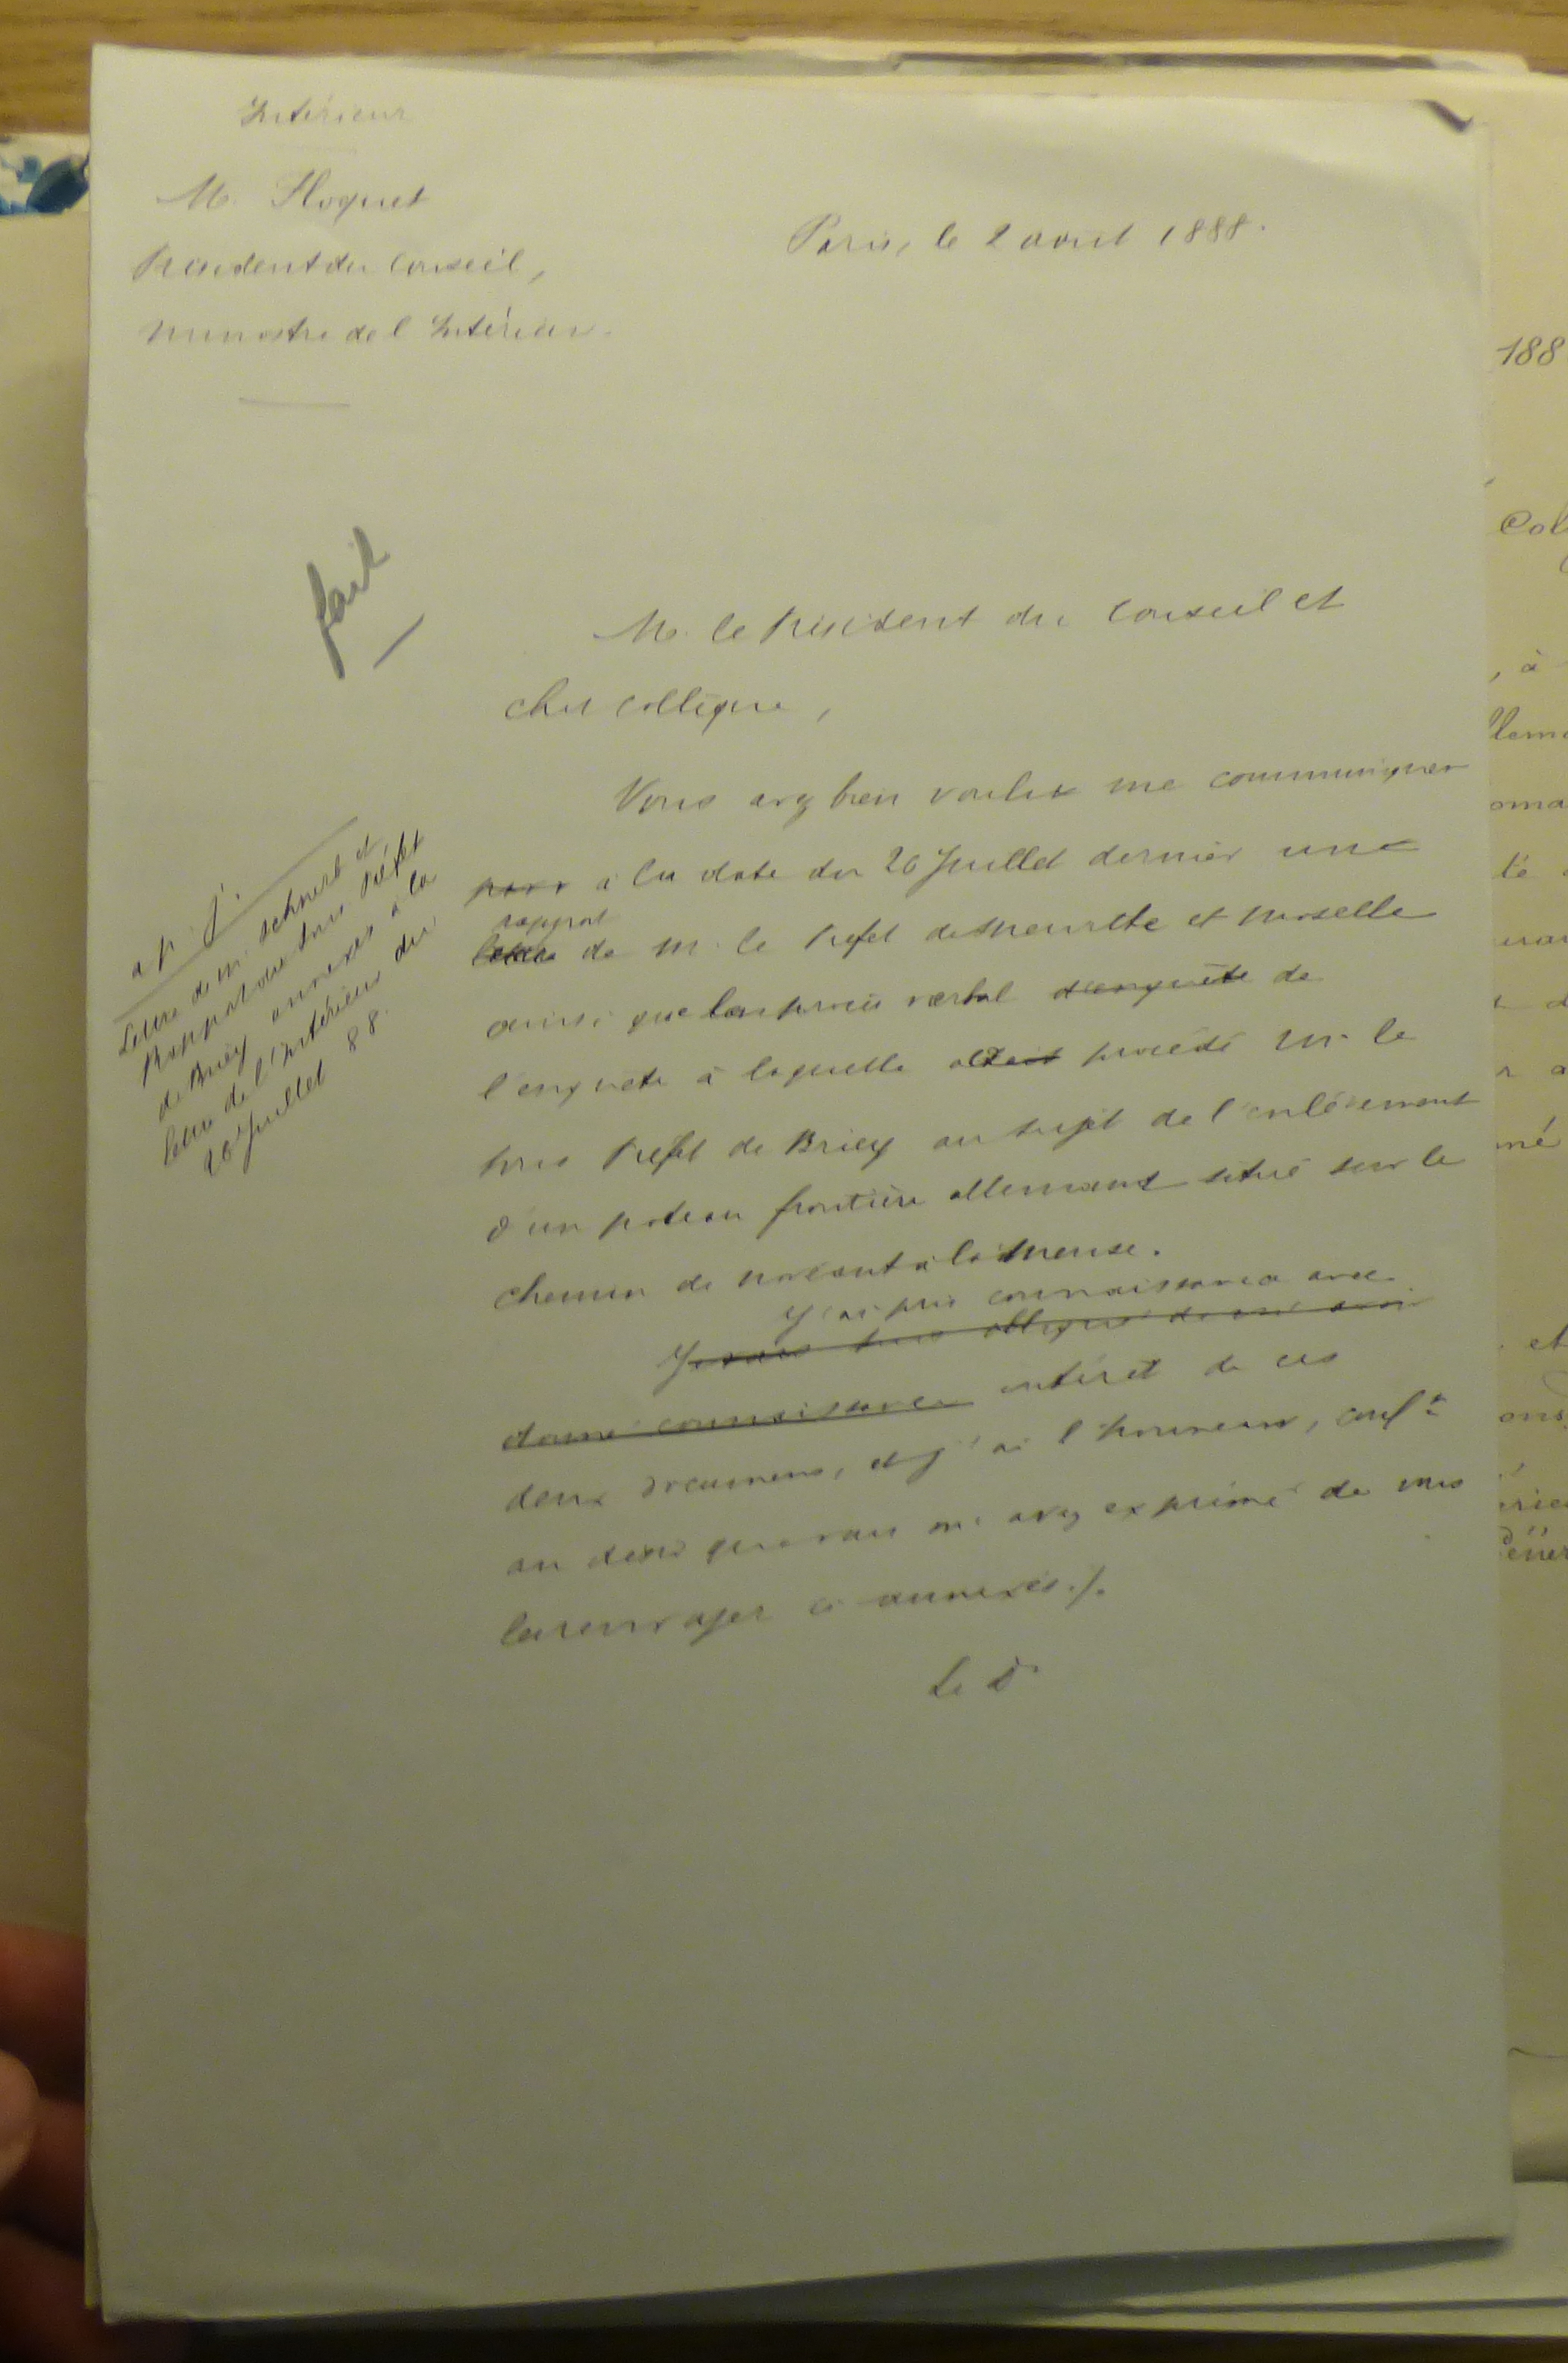 Intérieur
M. Floquet
Président du Conseil,
Ministre de l'Intérieur.
Paris, le 2 août 1888.
fait
M. le Président du Conseil et
cher collègue,
Vous avez bien voulu me communiquer
à la date du 20 Juillet dernier une
rapport
lettre de M. le Préfet de Meurthe et Moselle
ainsi que procès verbal d'enquête de
l'enquête à laquelle a procédé M. le
sous Préfet de Briey au sujet de l'enlèvement
d'un poteau frontière allemand situé sur le
chemin de à la Meuse.
J'ai pris connaissance avec
obligé de
donné connaissance intérêt de ces
deux documens, et j'ai l'honneur, conft
au désir que vous m'avez exprimé de vous
les renvoyer ci annexés./.
Le D
a p. j.
Lettre de M. Schnerb et
Rapport du sous Préfet
de Briey annexés à la
lettre de l'Intérieur du
20 Juillet 88.
188
Col
, à
llema
oma
té
mé
et